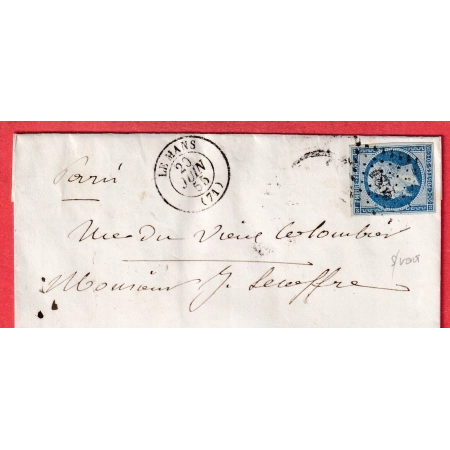 LE MANS
20
JUIN
55
(71)
Paris
rue du Vieux Colombier
Monsieur J. Lecoffre